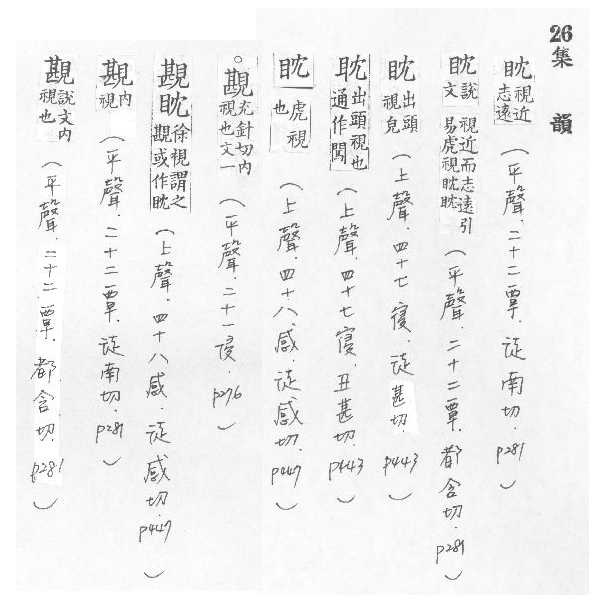 26集韻
眈視近志遠（平聲．二十二覃．徒南切．p281）
眈說文視近而志遠引易虎視眈眈（平聲．二十二覃．都含切．p281）
眈出頭視皃（上聲．四十七寑．徒甚切．p443）
耽出頭視也通作闖（上聲．四十七寑．丑甚切．p443）
眈虎視也（上聲．四十八感．徒感切．p447）
。覴充針切內視也文一（平聲．二十一侵．p276）
覴眈徐視謂之覴或作眈（上聲．四十八感．徒感切．p447）
覴內視（平聲．二十二覃．徒南切．p281）
覴說文內視也（平聲．二十二覃．都含切．p281）